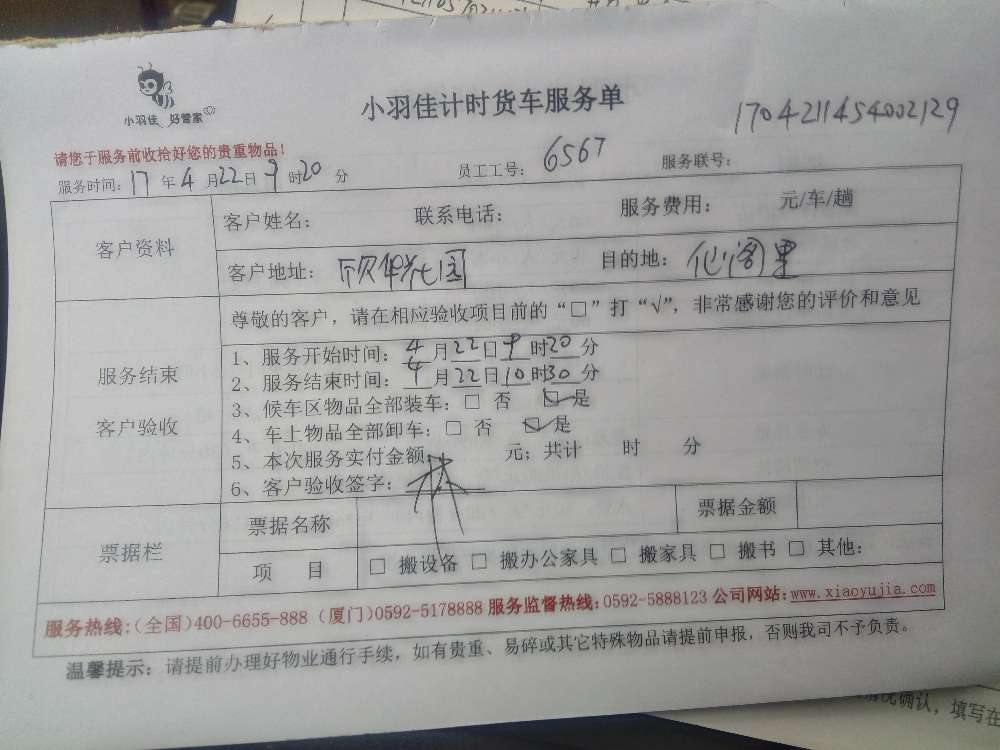 小羽佳 好管家
小羽佳计时货车服务单
1704211454002129
请您于服务前收拾好您的贵重物品!
服务时间: 17 年 4 月 22 日 9 时 20 分 员工工号: 6567 服务联号:
客户资料
客户姓名: 联系电话: 服务费用: 元/车/趟
客户地址: 目的地: 阁里
服务结束
客户验收
尊敬的客户, 请在相应验收项目前的“□”打“√”, 非常感谢您的评价和意见
1、服务开始时间: 4 月 22 日 9 时 20 分
2、服务结束时间: 4 月 22 日 10 时 30 分
3、候车区物品全部装车: □ 否 ☑ 是
4、车上物品全部卸车: □ 否 ☑ 是
5、本次服务实付金额 元; 共计 时 分
6、客户验收签字: 林
票据栏
票据名称 票据金额
项 目 □ 搬设备 □ 搬办公家具 □ 搬家具 □ 搬书 □ 其他:
服务热线:(全国)400-6655-888 (厦门)0592-5178888 服务监督热线:0592-5888123 公司网站:www.xiaoyujia.com
温馨提示: 请提前办理好物业通行手续, 如有贵重、易碎或其它特殊物品请提前申报, 否则我司不予负责。
确认, 填写在